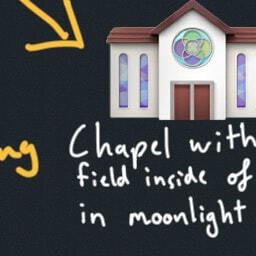 ng Chapel with
field inside of
in moonlight